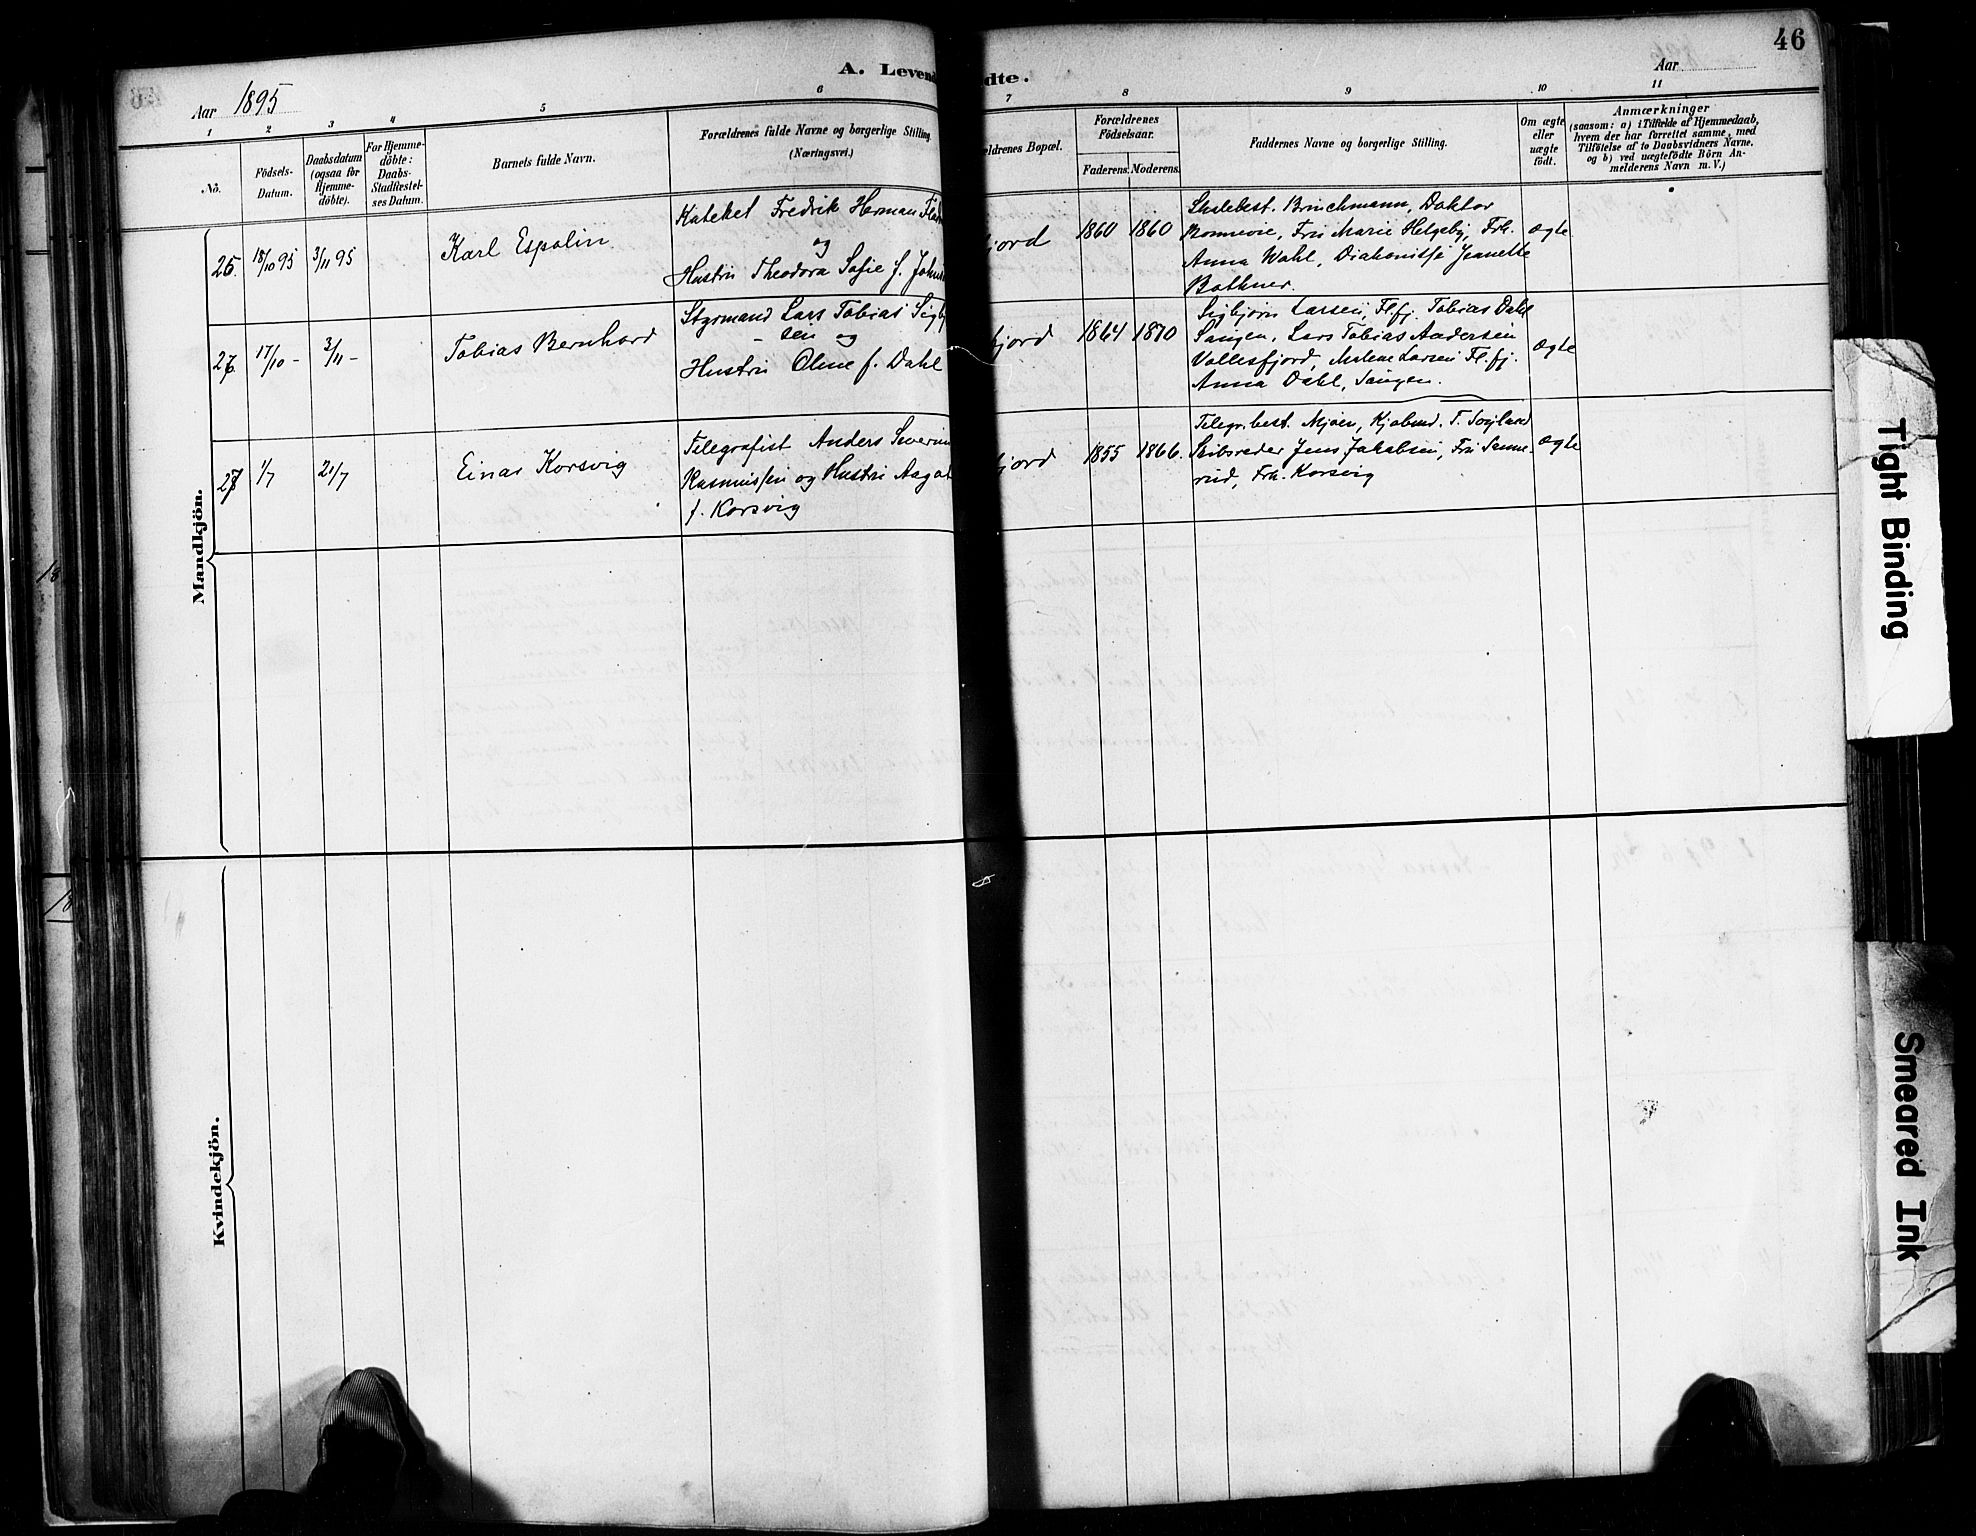 46
Aar 1895
A. Levend
dte.
Aar
1 2 3 4 5 6 7 8 9 10 11
No.
Födsels-
Datum.
Daabsdatum
(ogsaa for
Hjemme-
döbte).
For Hjemme-
döbte:
Daabs-
Stadfæstel-
ses Datum.
Barnets fulde Navn.
Forældrenes fulde Navne og borgerlige Stilling.
(Næringsvei.)
ældrenes Bopæl.
Forældrenes
Födselsaar.
Faderens. Moderens.
Faddernes Navne og borgerlige Stilling.
Om ægte
eller
uægte
födt.
Anmærkninger
(saasom: a) i Tilfælde af Hjemmedaab,
hvem der har forrettet samme, med
Tilföielse af to Daabsvidners Navne,
og b) ved uægtefödte Börn An-
melderens Navn m. V.)
Mandkjön.
25. 18/10 95 3/11 95
Karl Espolin
Kateket Fredrik Herman
og
Hustru Theodora Sofie f.
jord
1860 1860
Skolebest. Brinchmann, Doktor
Bonnevie, Fru Marie Helgeby, Frk.
Anna Wahl, Diakonisse Jeanette
Bothner.
ægte
26. 17/10 - 3/11 -
Tobias Bernhard
Styrmand Lars Tobias
- sen og
Hustru Oline f. Dahl
jord
1864 1870
Sigbjørn Larsen, Fl.fj. Tobias Dahl
Saugen, Lars Tobias Andersen
Vollesfjord, Malene Larsen Fl.fj.
Anna Dahl, Saugen.
ægte
27 1/7 21/7
Einar Korsvig
Telegrafist Anders Severin
Rasmussen og Hustru
f. Korsvig
jord
1855 1866.
Telegr.best. Mjøen, Kjøbmd. T.
Skibsreder Jens Jakobsen, Fru Sanne-
rud, Frk. Korsvig
ægte
Kvindekjön.
Tight Binding
Smeared Ink